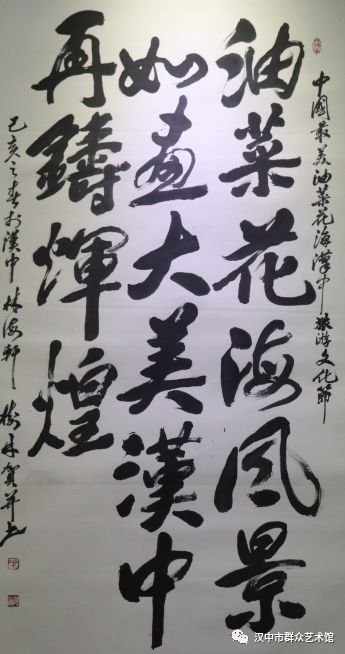 中國最美油菜花海漢中旅游文化節
油菜花海風景
如画大美漢中
再鑄輝煌
己亥之春於漢中林海軒 樹林賀並书
汉中市群众艺术馆